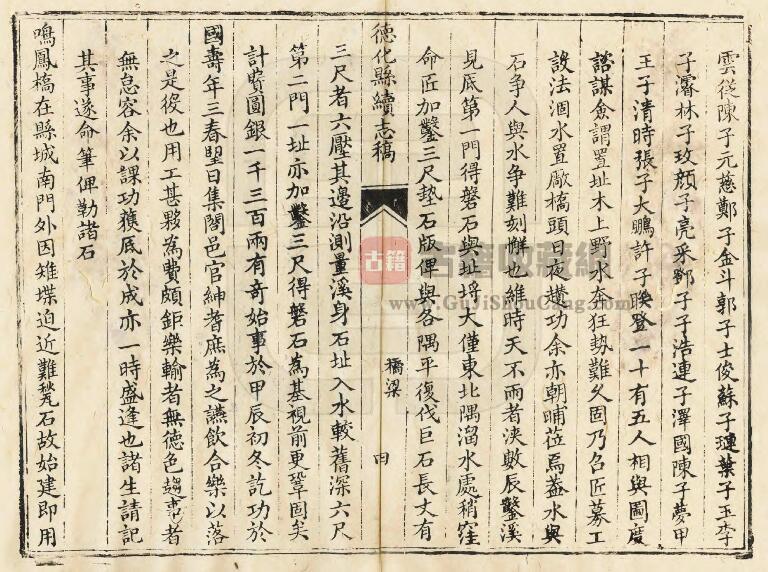 雲從陳子元慈鄭子金斗郭子士俊蘇子璉葉子玉李
子濬林子玫顏子亮采鄧子子浩連子澤國陳子夢甲
王子清時張子大鵬許子映登一十有五人相與圖度
諮謀僉謂置址木上野水奔狂勢難久固乃召匠募工
設法涸水置廠橋頭日夜趲功余亦朝晡蒞焉葢水與
石争人與水争難刻懈也維時天不雨者浹數辰鑿溪
見底第一門得磐石與址埒大僅東北隅溜水處稍窪
命匠加鑿三尺墊石版俾與各隅平復伐巨石長丈有
德化縣續志稿
橋梁
四
三尺者六壓其邊沿測量溪身石址入水較舊深六尺
第二門一址亦加鑿三尺得磐石為基視前更鞏固矣
計費圓銀一千三百兩有奇始事於甲辰初冬訖功於
國壽年三春朢日集閤邑官紳耆庶為之讌飲合樂以落
之是役也用工甚夥為費頗鉅樂輸者無德色趨事者
無怠容余以課功獲底於成亦一時盛逢也諸生請記
其事遂命筆俾勒諸石
鳴鳳橋在縣城南門外因雉堞迫近難甃石故始建即用
古籍
古籍收藏網
www.GuJiShouCang.com